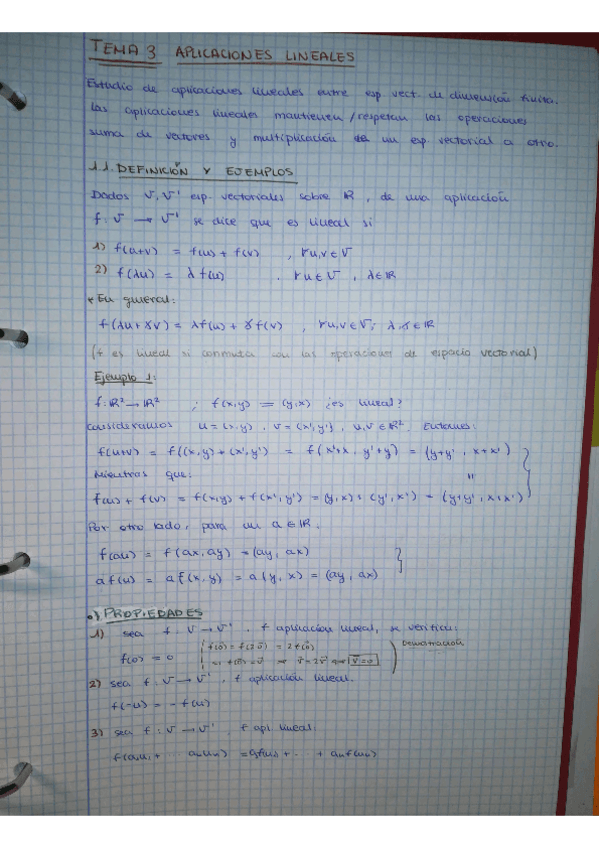 TEMA 3 APLICACIONES LINEALES
Estudio de aplicaciones lineales entre esp. vect. de dimensión finita.
Las aplicaciones lineales mantienen/respetan las operaciones
suma de vectores y multiplicación de un esp. vectorial a otro.
1.1. DEFINICIÓN Y EJEMPLOS
Dados V, V' esp. vectoriales sobre ℝ, de una aplicación
f: V → V' se dice que es lineal si
1) f(u+v) = f(u) + f(v) , ∀u,v ∈ V
2) f(λu) = λ f(u) , ∀u ∈ V , λ ∈ ℝ
* En general:
f(λu + γv) = λf(u) + γf(v) , ∀u,v ∈ V; λ, γ ∈ ℝ
(f es lineal si conmuta con las operaciones de espacio vectorial)
Ejemplo 1:
f: ℝ² → ℝ² ; f(x,y) = (y,x) ¿es lineal?
Consideramos u = (x,y) , v = (x',y') , u,v ∈ ℝ². Entonces:
f(u+v) = f((x,y) + (x',y') = f(x'+x , y'+y) = (y+y' , x+x')
Mientras que: "
f(u) + f(v) = f(x,y) + f(x',y') = (y,x) + (y',x') = (y+y', x+x')
Por otro lado, para un a ∈ ℝ.
f(au) = f(ax, ay) = (ay, ax)
a f(u) = a f(x,y) = a(y,x) = (ay, ax)
o) PROPIEDADES
1) sea f: V → V' , f aplicación lineal, se verifica:
f(0) = 0 f(0) = f(2·0) = 2 f(0) Demostración
f(0) = v ⇒ v = 2v ⇔ v = 0
2) sea f: V → V' , f aplicación lineal.
f(-u) = -f(u)
3) sea f: V → V' , f apl lineal:
f(a₁u₁ + ... aₙuₙ) = a₁f(u₁) + ... + aₙf(uₙ)